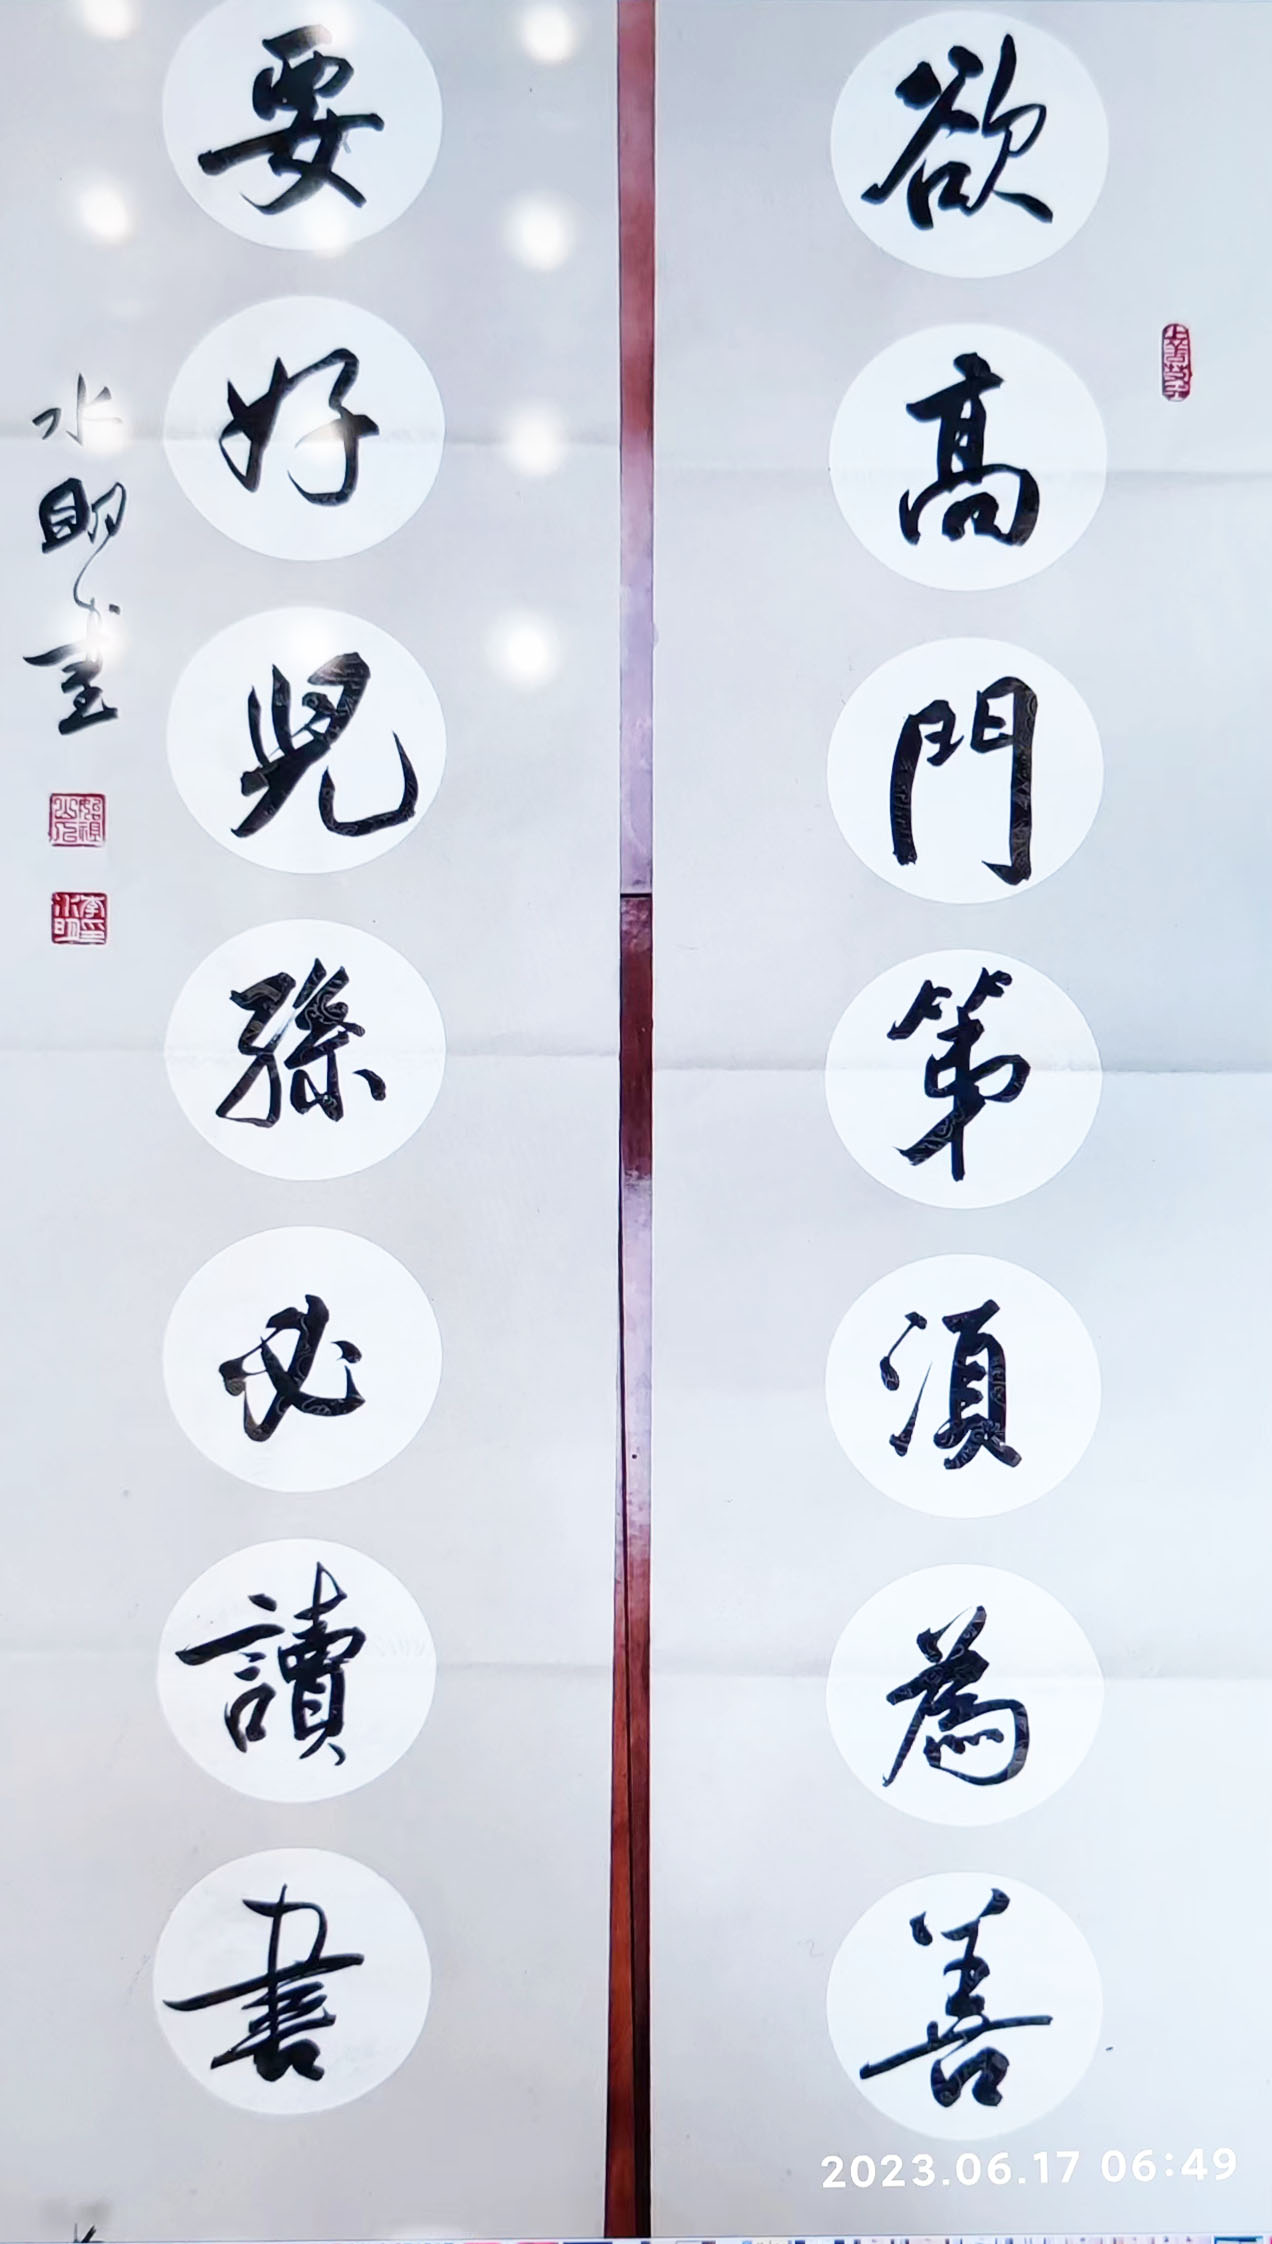 欲高門第須為善
要好兒孫必讀書
水明書
李水明印
2023.06.17 06:49